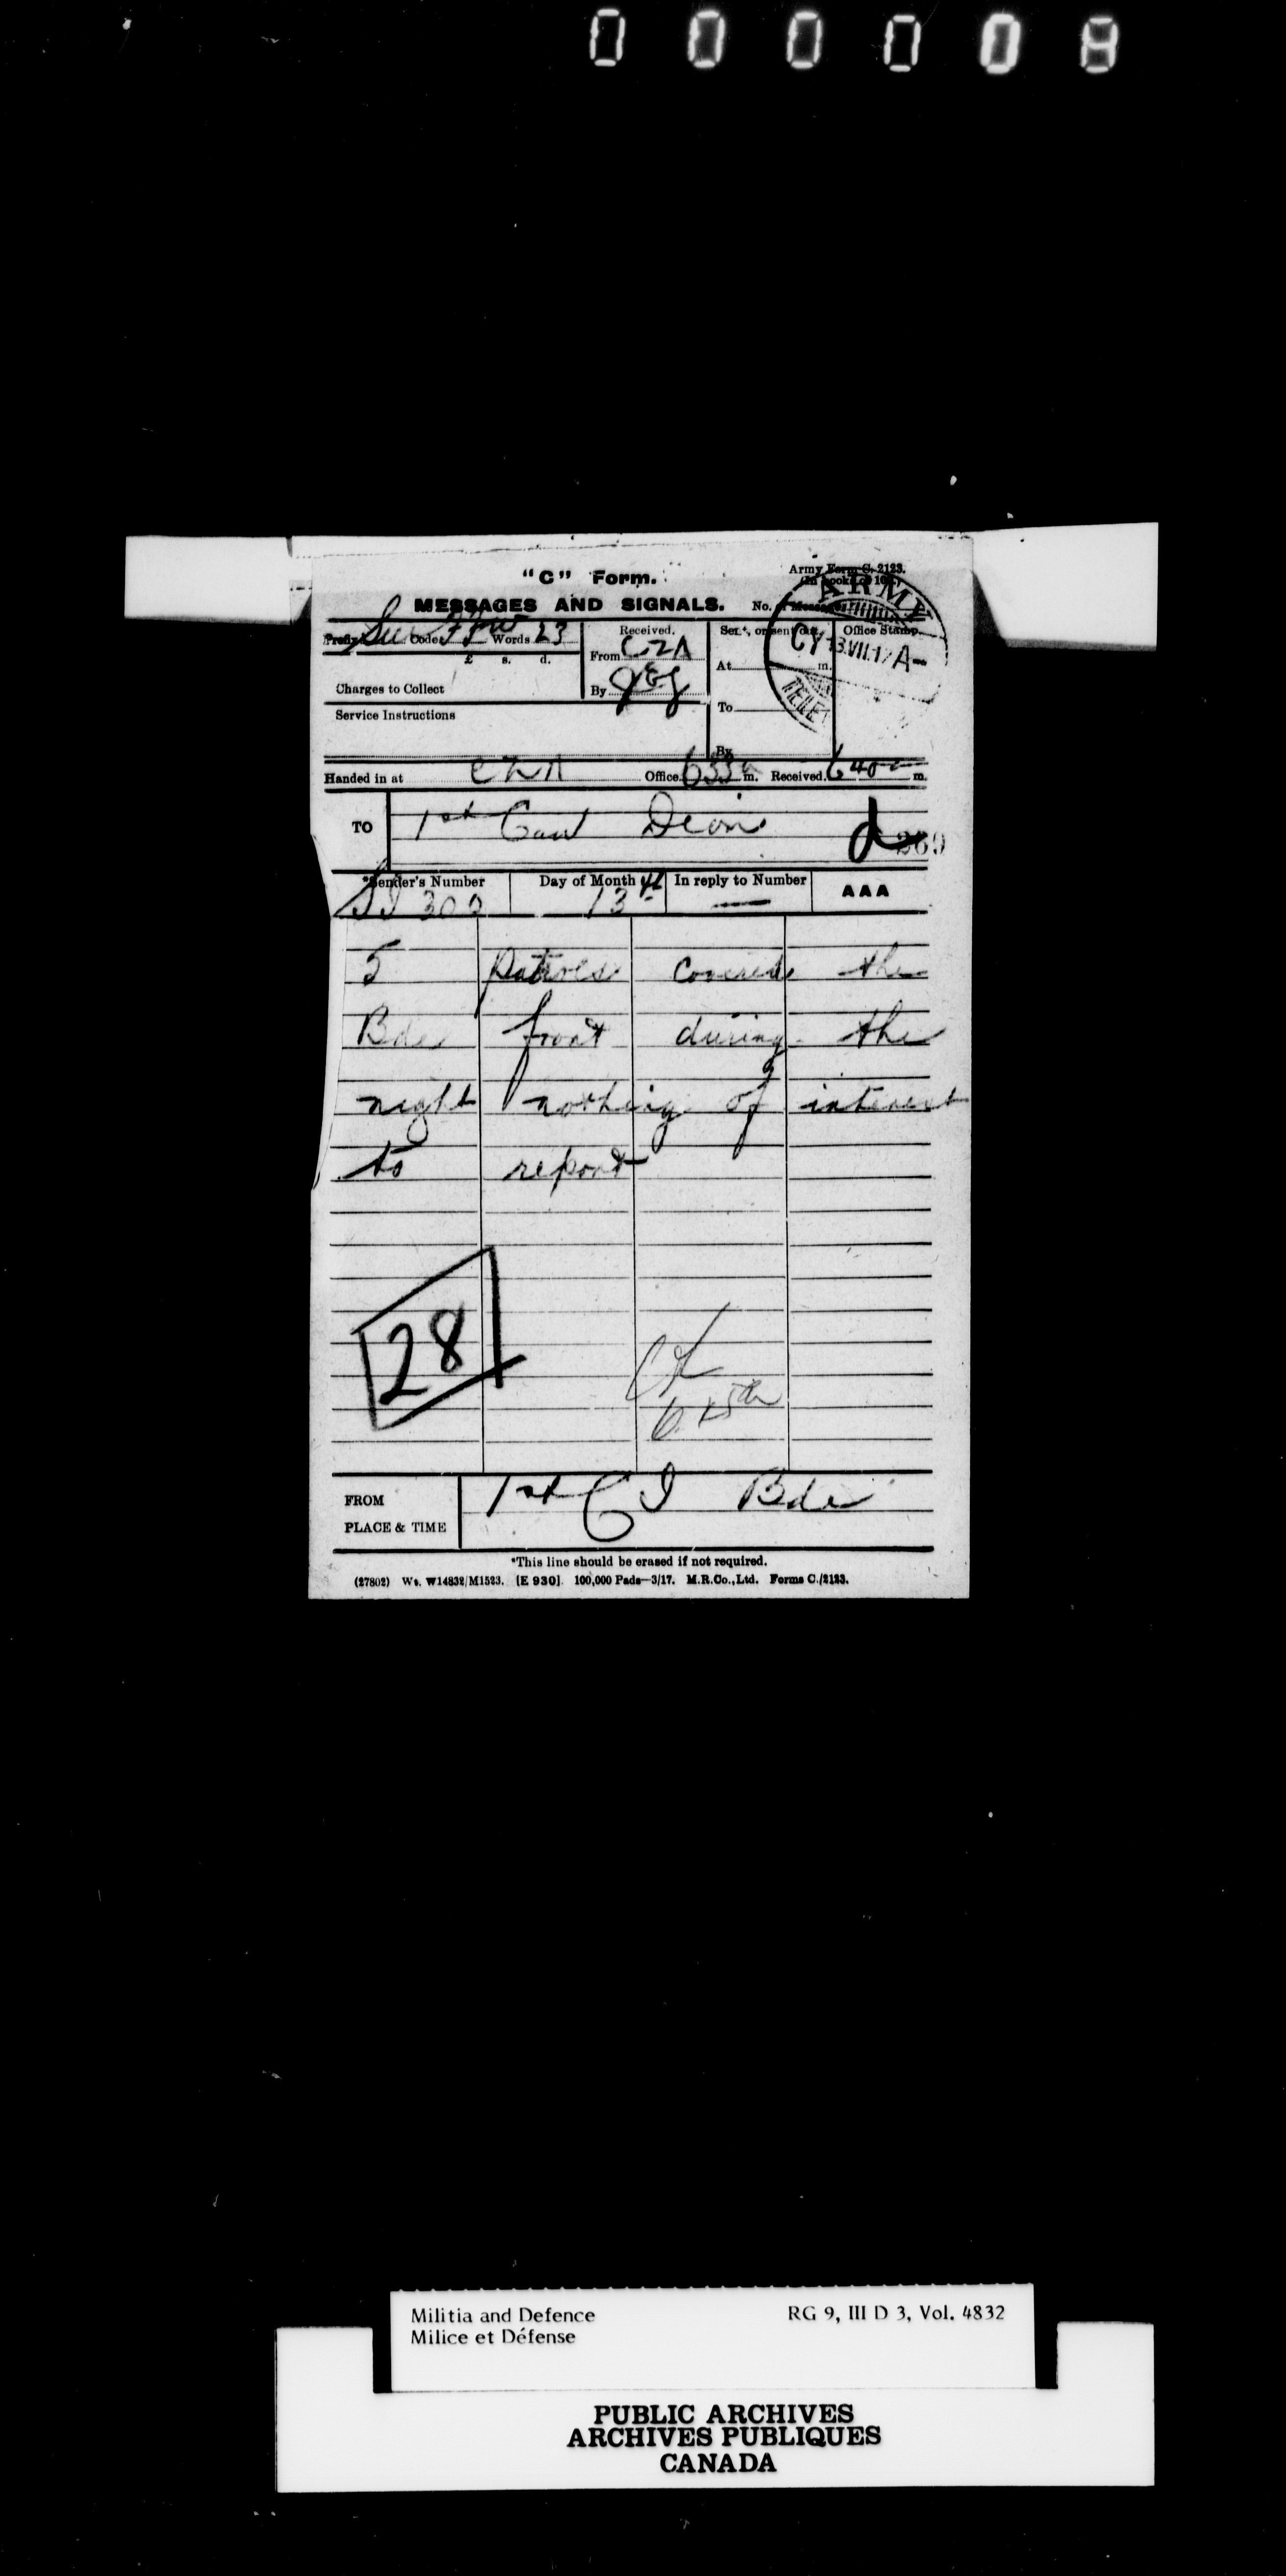 "C" Form.
Army Form C. 2123.
MESSAGES AND SIGNALS.
No. of Message
Prefix Code Words 23
£ s. d.
Charges to Collect
Service Instructions
Received.
From CZA
By
Sent, or sent out
At m.
To
By
Office Stamp.
ARMY
CY 13.VII.17 A-
TELE
Handed in at CZA Office 655 a m. Received 640 a m.
TO 1st Can Divn
269
*Sender's Number Day of Month In reply to Number AAA
300 13th —
5 Patrols covered the
Bde front during the
night nothing of interest
to report
28
FROM 1st C I Bde
PLACE & TIME
*This line should be erased if not required.
(27802) Wt. W14832/M1523. [E 930] 100,000 Pads—3/17. M.R.Co.,Ltd. Forms C./2123.
Militia and Defence RG 9, III D 3, Vol. 4832
Milice et Défense
PUBLIC ARCHIVES
ARCHIVES PUBLIQUES
CANADA